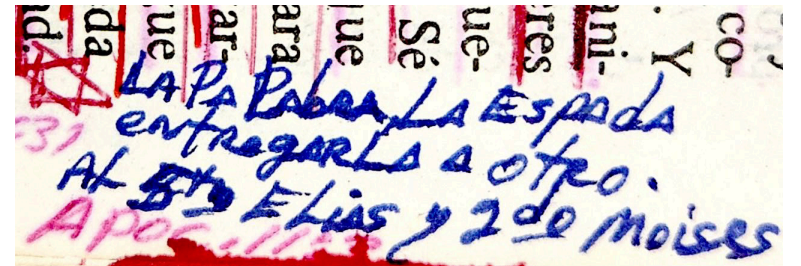 co-
. Y
ani-
res
ue-
Sé
ue
ara
ar-
ue
da
nd.
LA PA PALABRA, LA EspAdA
entregARLA A otro.
31
AL 5to ELIAS y 2do Moises